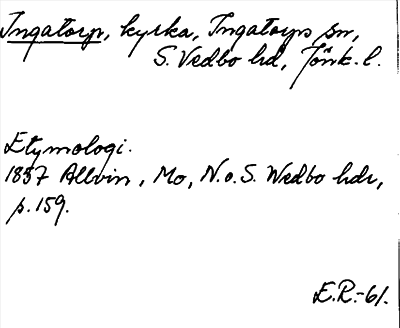 Ingatorp, kyrka, Ingatorps sn,
S. Vedbo hd, Jönk. l.
Etymologi.
1857 Allvin, Mo, N. o. S. Wedbo hdr,
p. 159.
E.R.-61.